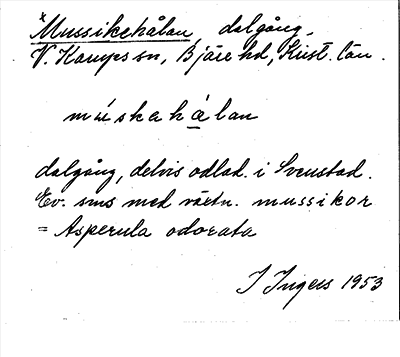 * Mussikehålan, dalgång,
V. Karups sn, Bjäre hd, Krist. län.
múskahålan
dalgång, delvis odlad. i Svenstad.
Ev. sms med växtn. mussikor
= Asperula odorata
I Ingers 1953